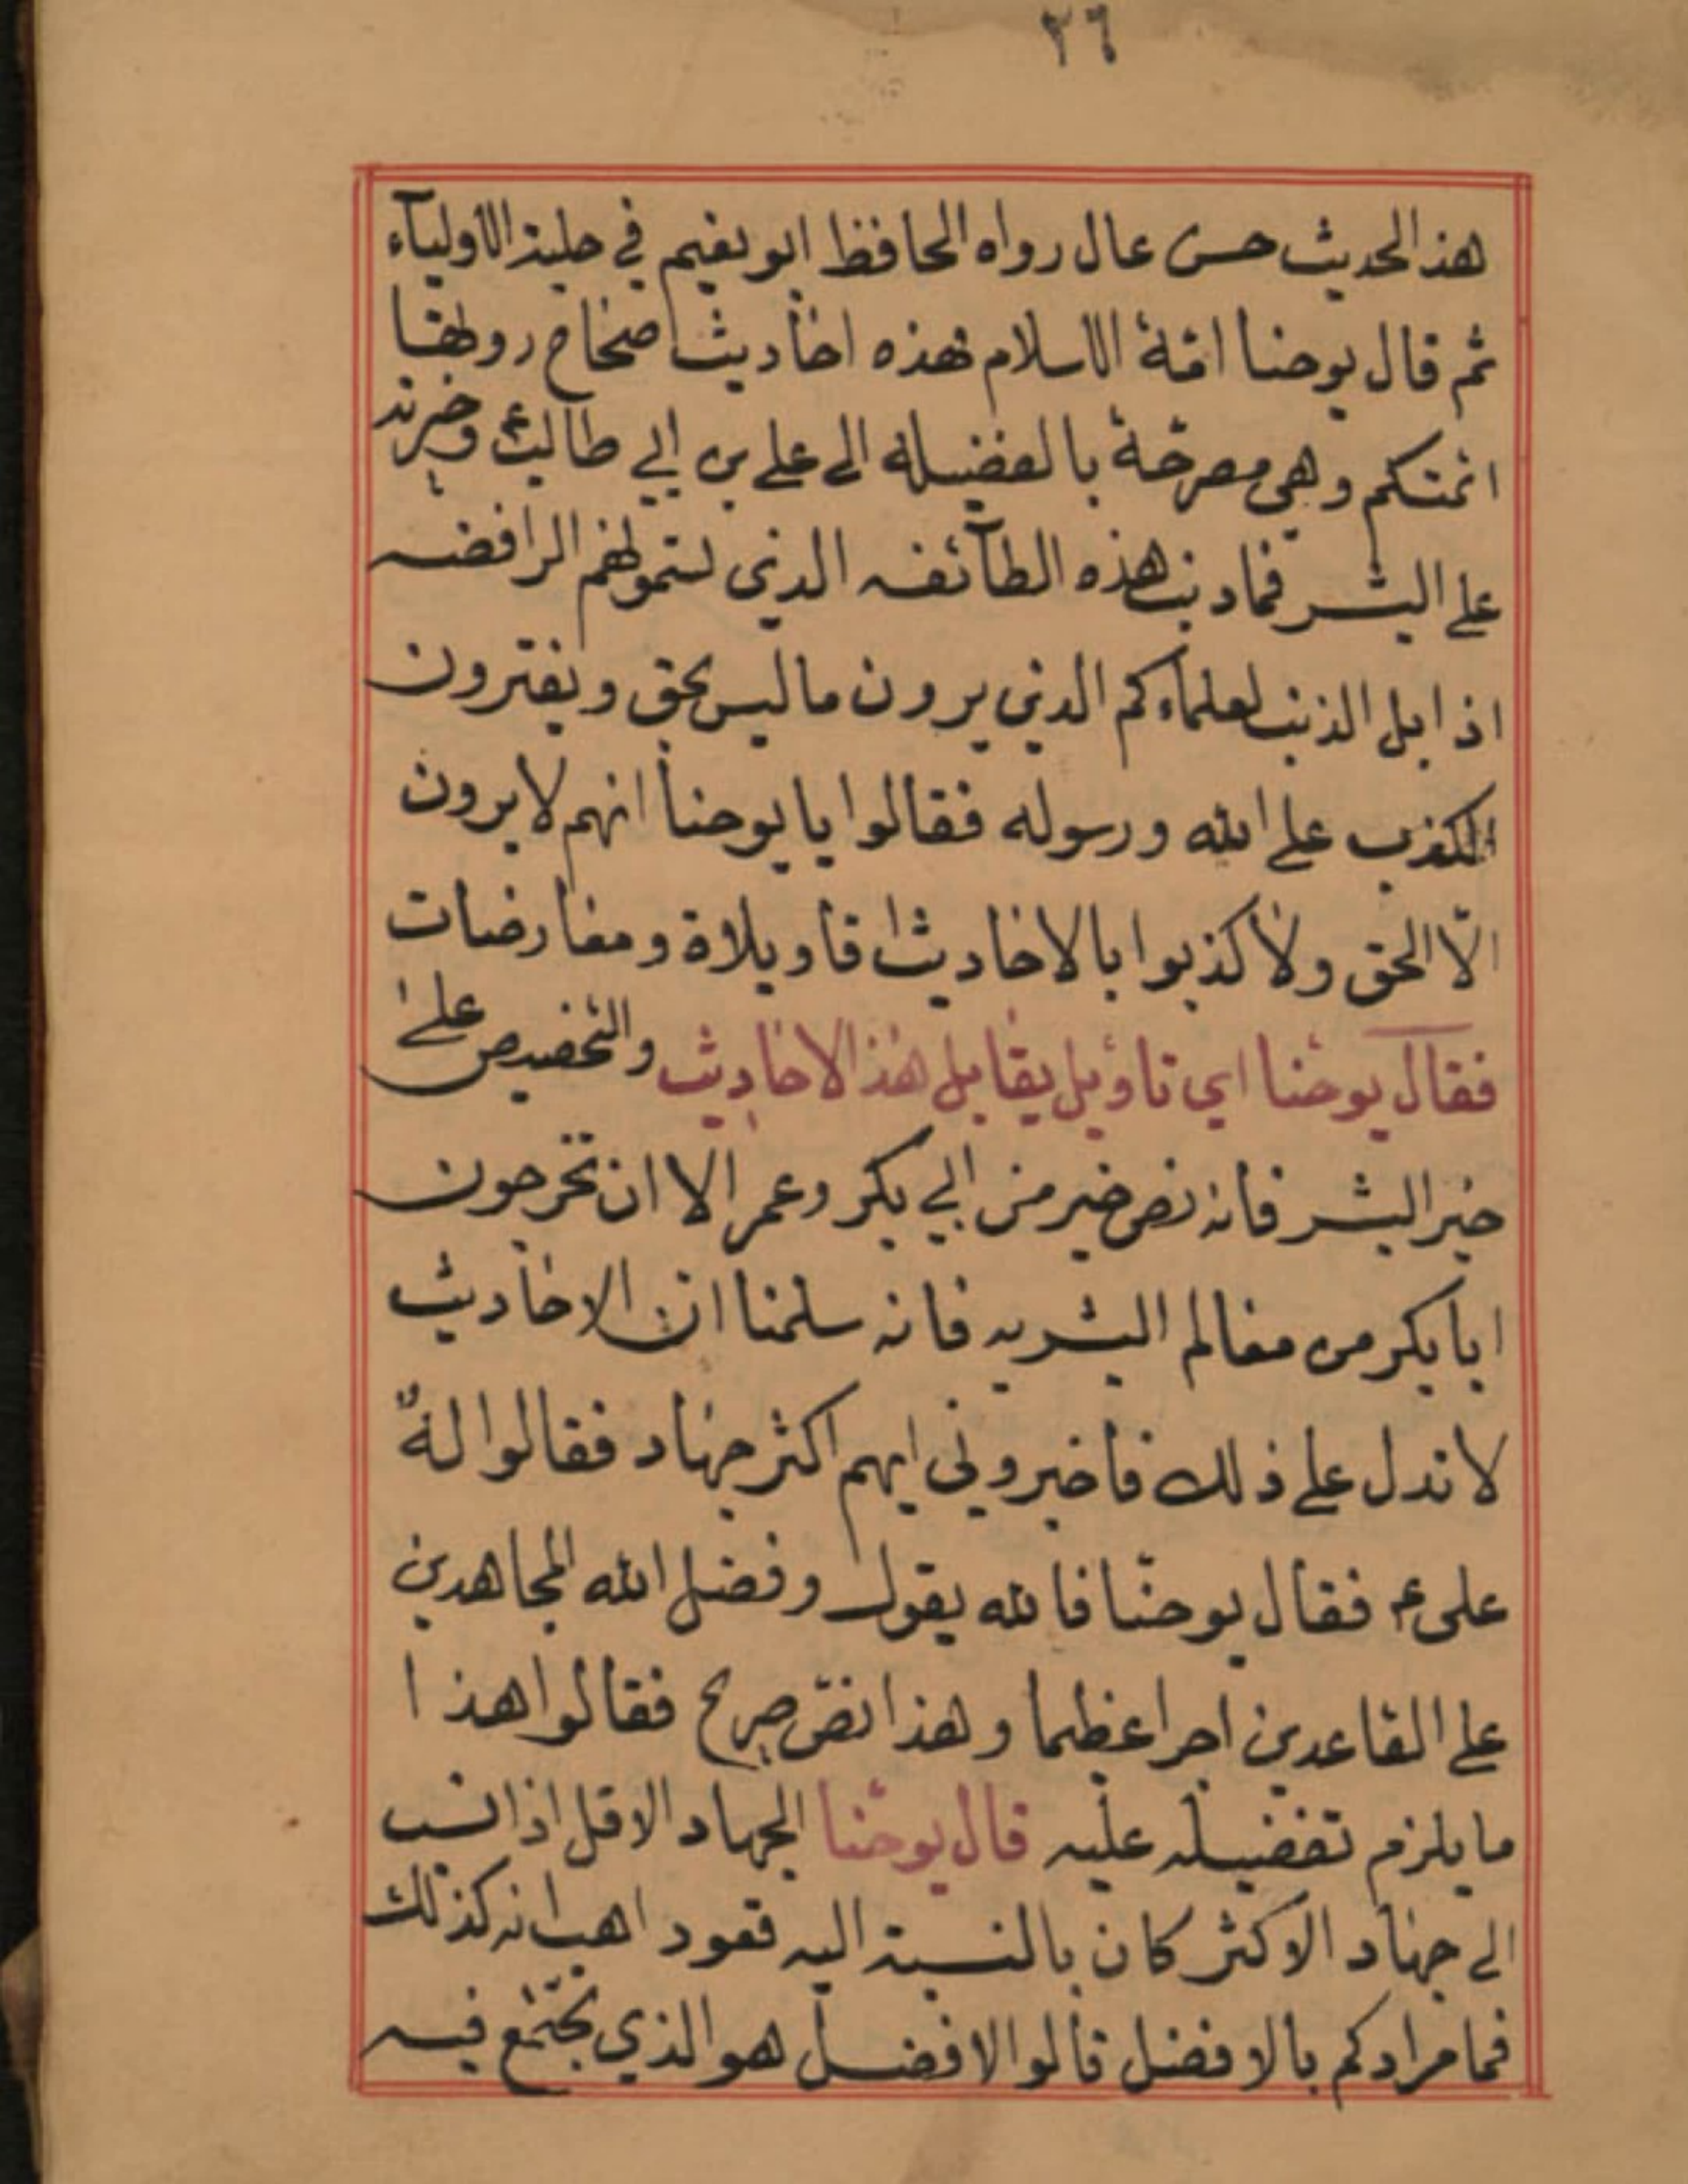 ٢٦
هذالحديث حسن عال رواه الحافظ ابو نعيم في حلية الاوليآء
ثم قال يوحنا ائمة الاسلام فهذه احاديث صحاح روتها
ائمتكم وهي مصرحة بالفضيله الى علي بن ابي طالب ع وخيرته
على البشر فماذنب هذه الطآئفه الذي تسمونهم الرافضه
اذا بل الذنب لعلماءكم الذين يرون ماليس بحق ويفترون
الكذب على الله ورسوله فقالوا يا يوحنا انهم لا يرون
الّا الحق ولا كذبوا بالاحاديث تاويلاة ومعارضات
فقال يوحنا اي تاويل يقابل هذالاحاديث والتخصيص على
خيرالبشر فانه نص خير من ابي بكر وعمر الا ان تخرجون
ابابكر من معالم البشريه فانه سلمنا ان الاحاديث
لا تدل على ذلك فاخبروني ايهم اكثر جهاد فقالوا له
علي ع فقال يوحنّا فالله يقول وفضل الله المجاهدين
على القاعدين اجرا عظيما وهذا نصّ صريح فقالوا هذا
ما يلزم تفضيله عليه قال يوحنا الجهاد الاقل اذا نسب
الى جهاد الاكثر كان بالنسبة اليه قعود اهب انه كذلك
فما مرادكم بالافضل قالوا الافضل هو الذي تجتمع فيه